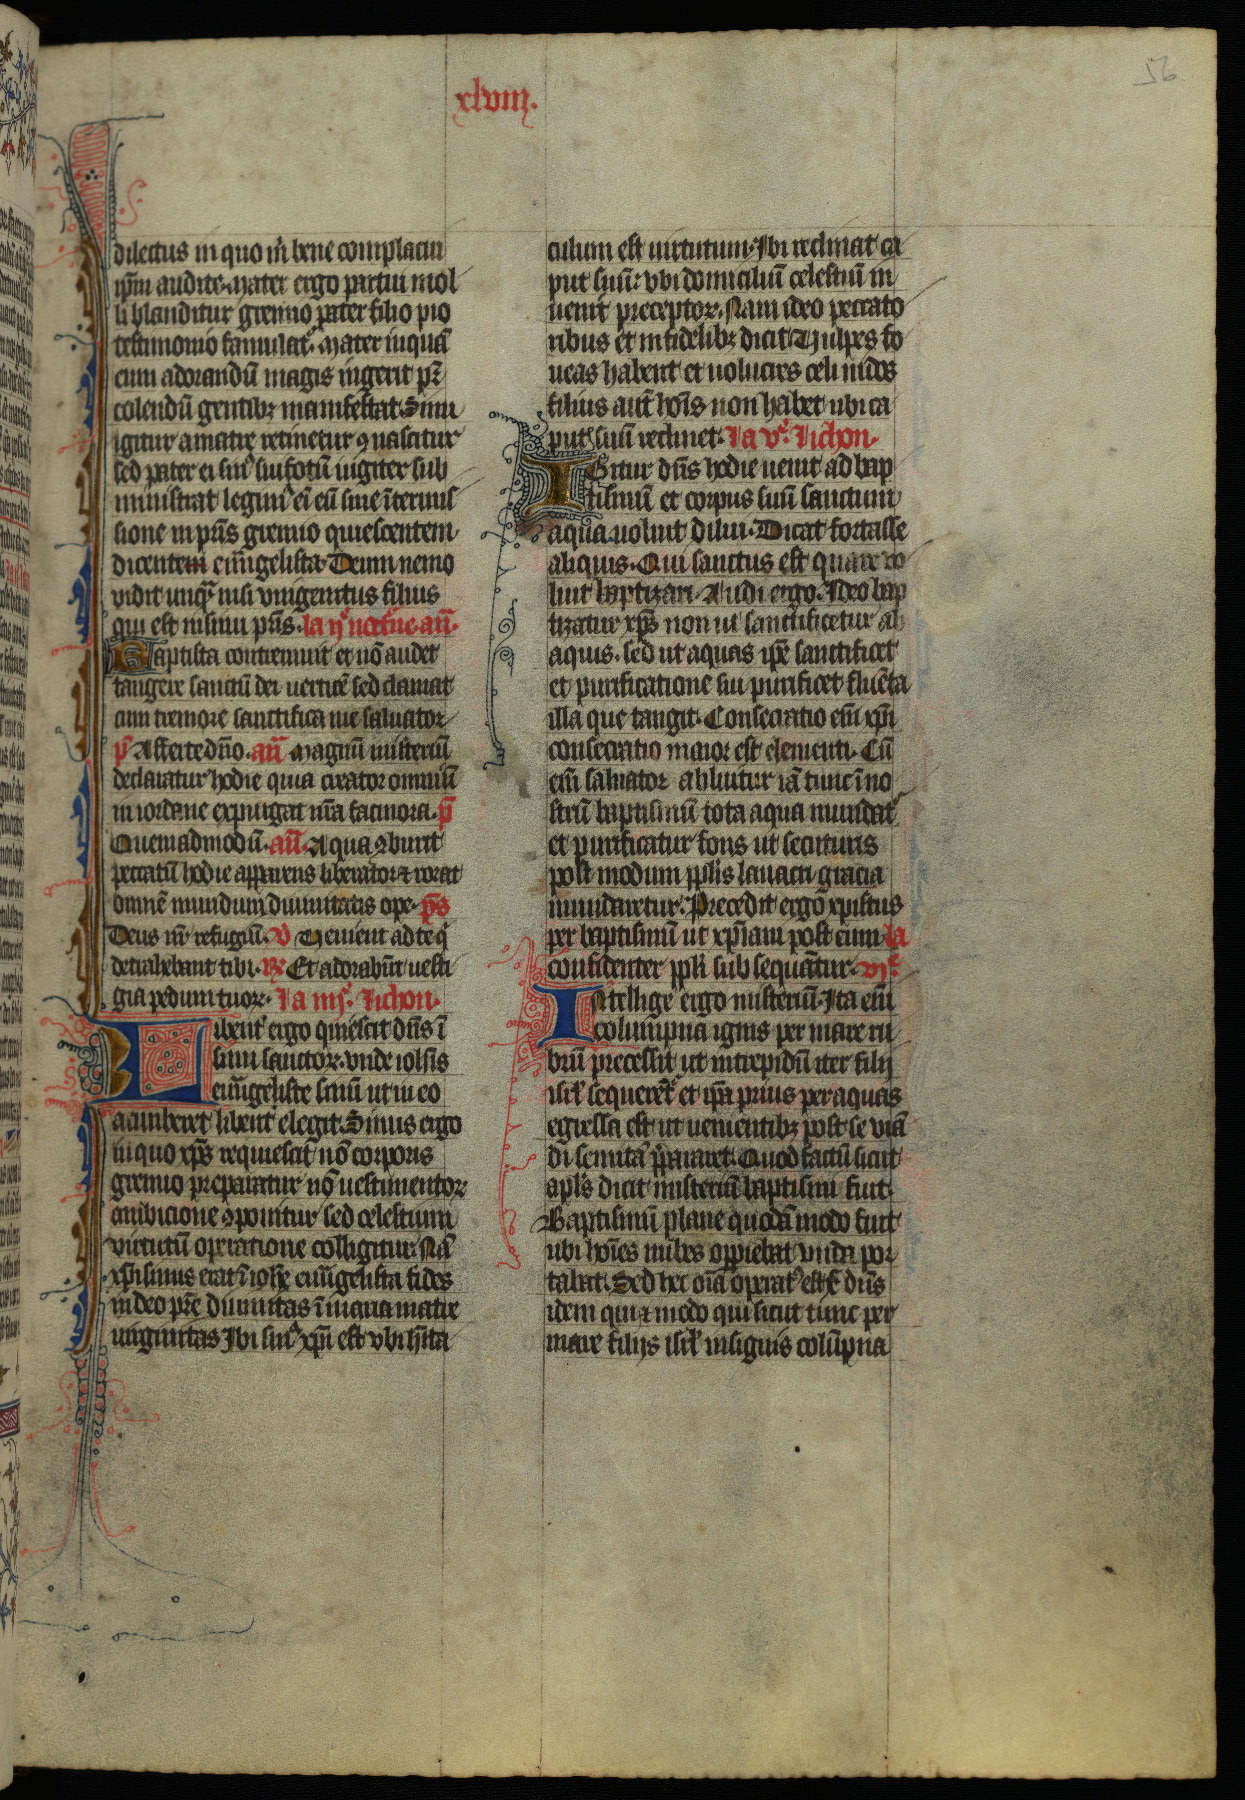 56
xlviii.
dilectus in quo m̄ bene complacui
ip̄m audite. Mater ergo partui mol
li blanditur gremio pater filio pio
testimonio famulat᷒. Mater inquā
eum adorandū magis ingerit pr̄
colendū gentibꝫ manifestat. Sinu
igitur a matre retinetur ꝯ nascitur
sed pater ei sui totū iugiter sub
ministrat legim᷒ eī eū sine īterm̄is
sione in pr̄is gremio quiescentem
dicentem euāngelista. Deum nemo
vidit unqꝫ nisi vnigenitus filius
qui est in sinu pr̄is. In ijͦ nocturͦ añ.
Baptista contremuit et nō audet
tangere sanctū dei verticē sed clamat
cum tremore sanctifica me saluator
p̄ Afferte dn̄o. añ Magnū misteriū
declaratur hodie quia creator omniū
in iordane expurgat nr̄a facinora. p̄
Quemadmodū. añ. Aqua ꝯburit
peccatū hodie apparens liberator ⁊ rorat
omnē mundum diuinitatis ope. p̄s
Deus nr̄ refugiū. v̄ Venient ad te q͛
detrahebant tibi. R̄ Et adorabūt uesti
gia pedum tuoꝝ. La iiijͣ. Iichon.
Libent᷒ ergo quiescit dn̄s ī
sinu sanctoꝝ. vnde ioh̄is
euāngeliste sinū ut in eo
acumberet libent᷒ elegit. Sinus ergo
in quo xp̄s requiescit nō corporis
gremio preparatur nō uestimentoꝝ
ambicione ꝯponitur sed celestium
virtutū operatione colligitur. Nā
xp̄i sinus erat ī ioh̄e euāngelista fides
in deo pr̄e diuinitas ī maria matre
uirginitas. Ibi sin᷒ xp̄i est vbi h̄ita
culum est uirtutum. Ibi reclinat ca
put suū: vbi domiciliū celestiū in
uenit preceptoꝝ. Nam ideo peccato
ribus et infidelibꝫ dicit. Vulpes fo
ueas habent et uolucres celi nidos
filius aut̄ hōis non habet ubi ca
put suū reclinet. La vͣ. Iichon.
Igitur dn̄s hodie uenit ad bap
tismū et corpus suū sanctum
aqua uoluit dilui. Dicat fortasse
aliquis. Qui sanctus est quare vo
luit baptizari. Audi ergo. Ideo bap
tizatur xp̄s non ut sanctificetur ab
aquis. sed ut aquas ip̄e sanctificet
et purificatione sui purificet fluēta
illa que tangit. Consecratio em̄ xp̄i
consecratio maior est elementi. Cū
em̄ saluator abluitur iā tunc ī no
strū baptismū tota aqua mundat᷒
et purificatur fons ut secuturis
post modum pp̄lis lauacri gracia
mundaretur. Precedit ergo xpistus
per baptismū ut xp̄iani post eum La
confidenter pp̄li subsequātur. vjͣ
Intellige ergo misteriū. Ita em̄
columpna ignis per mare ru
brū precessit ut intrepidū iter filij
isrl̄ sequerēt᷒ et ip̄a prius per aquas
egressa est ut uenientibꝫ post se viā
di semitā p̄pararet. Quod factū sicut
apl̄s dicit misteriū baptismi fuit.
Baptismū plane quodā modo fuit
ubi hōies nubes opp̄iebat vnda por
tabat. Sed hec oīa operat᷒ est xp̄c dn̄s
idem qui ⁊ modo qui sicut tunc per
mare filijs isrl̄ in signis colūpna